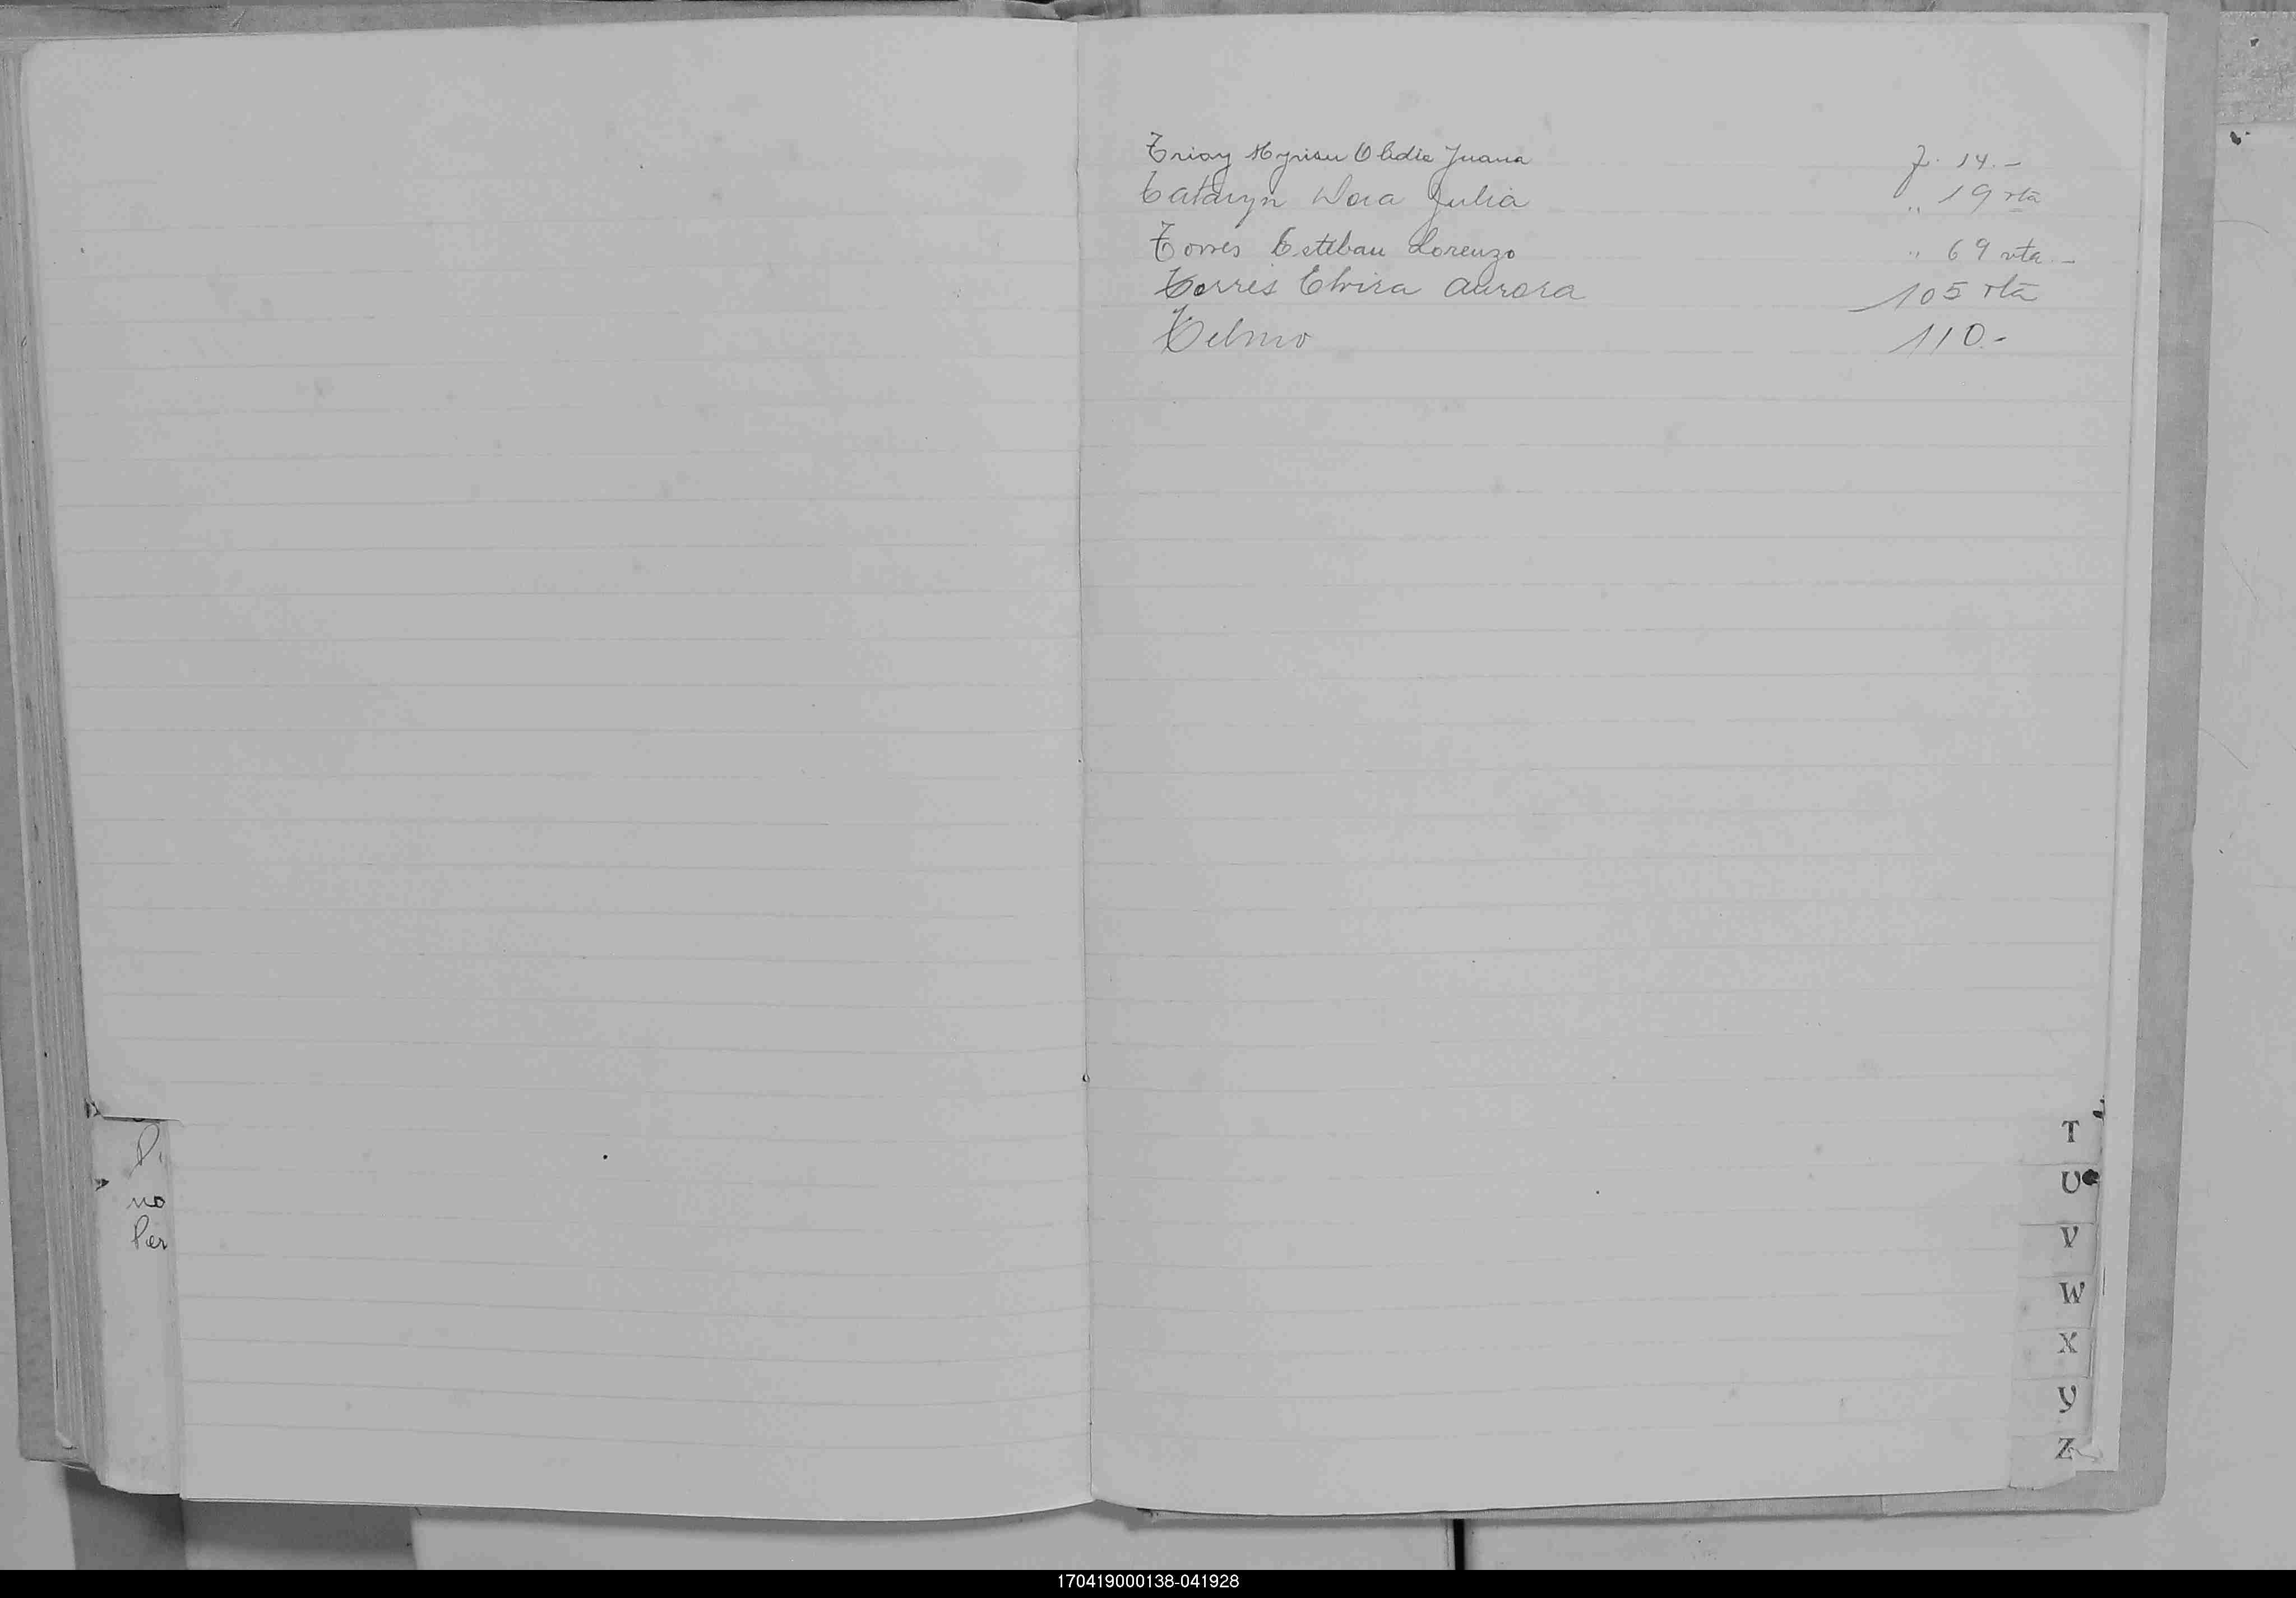 Trioy Myriam Olidie Juana f. 14.-
Tataryn Dora Julia " 19 vta
Torres Esteban Lorenzo " 69 vta.-
Torres Elvira Aurora 105 vta
Telmo 110.-
P.
no
Per
T
U
V
W
X
Y
Z
170419000138-041928